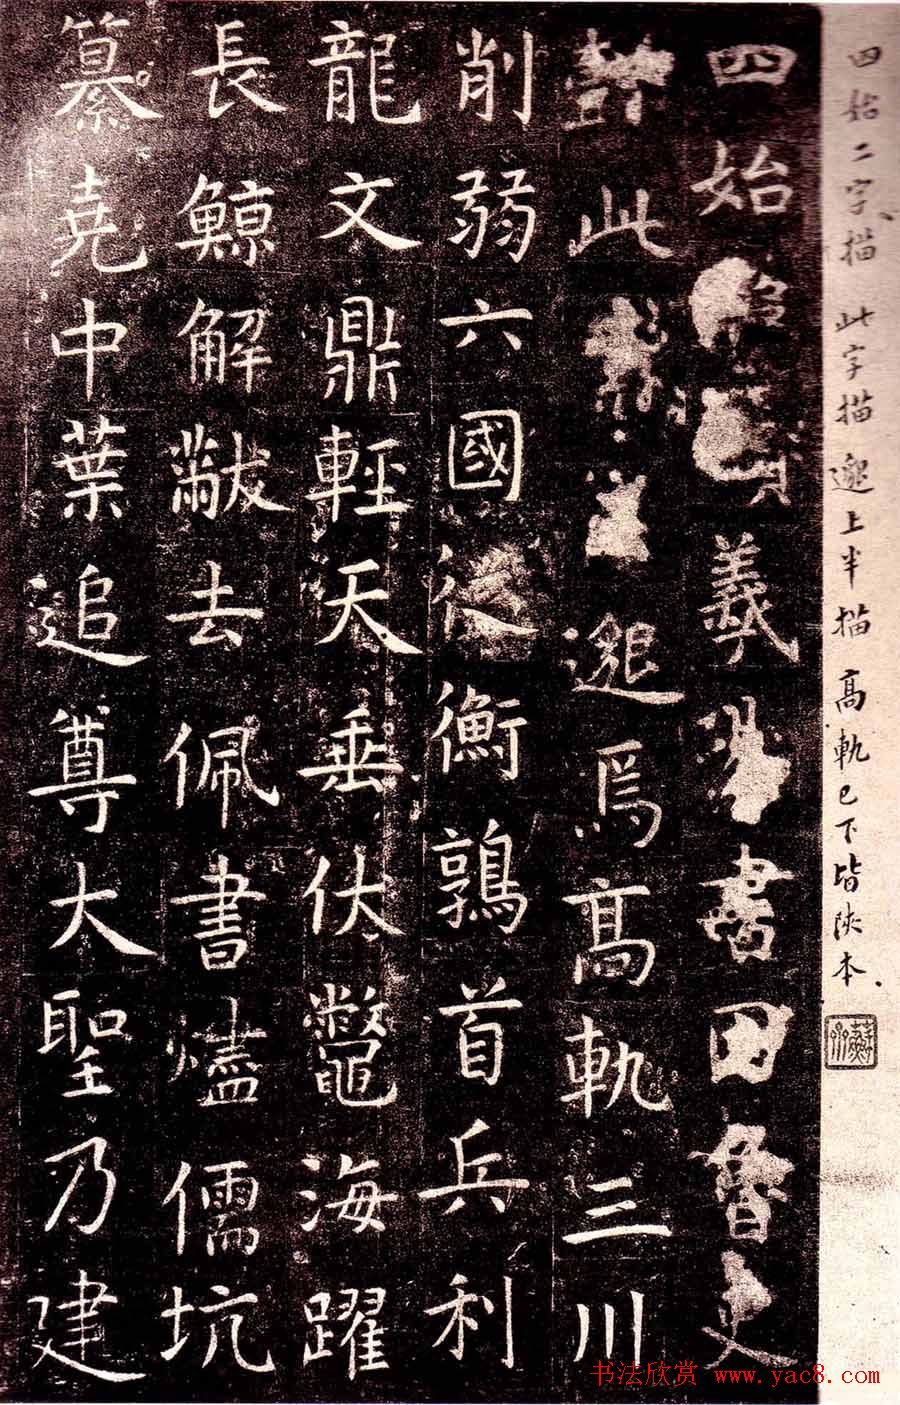 四始二字描 此字描 邈上半描 高軌已下皆陝本
四始羲書因魯史
此邈焉高軌三川
削弱六國從衡鶉首兵利
龍文鼎輕天垂伏鼈海躍
長鯨解黻去佩書燼儒坑
纂堯中葉追尊大聖乃建
书法欣赏 www.yac8.com